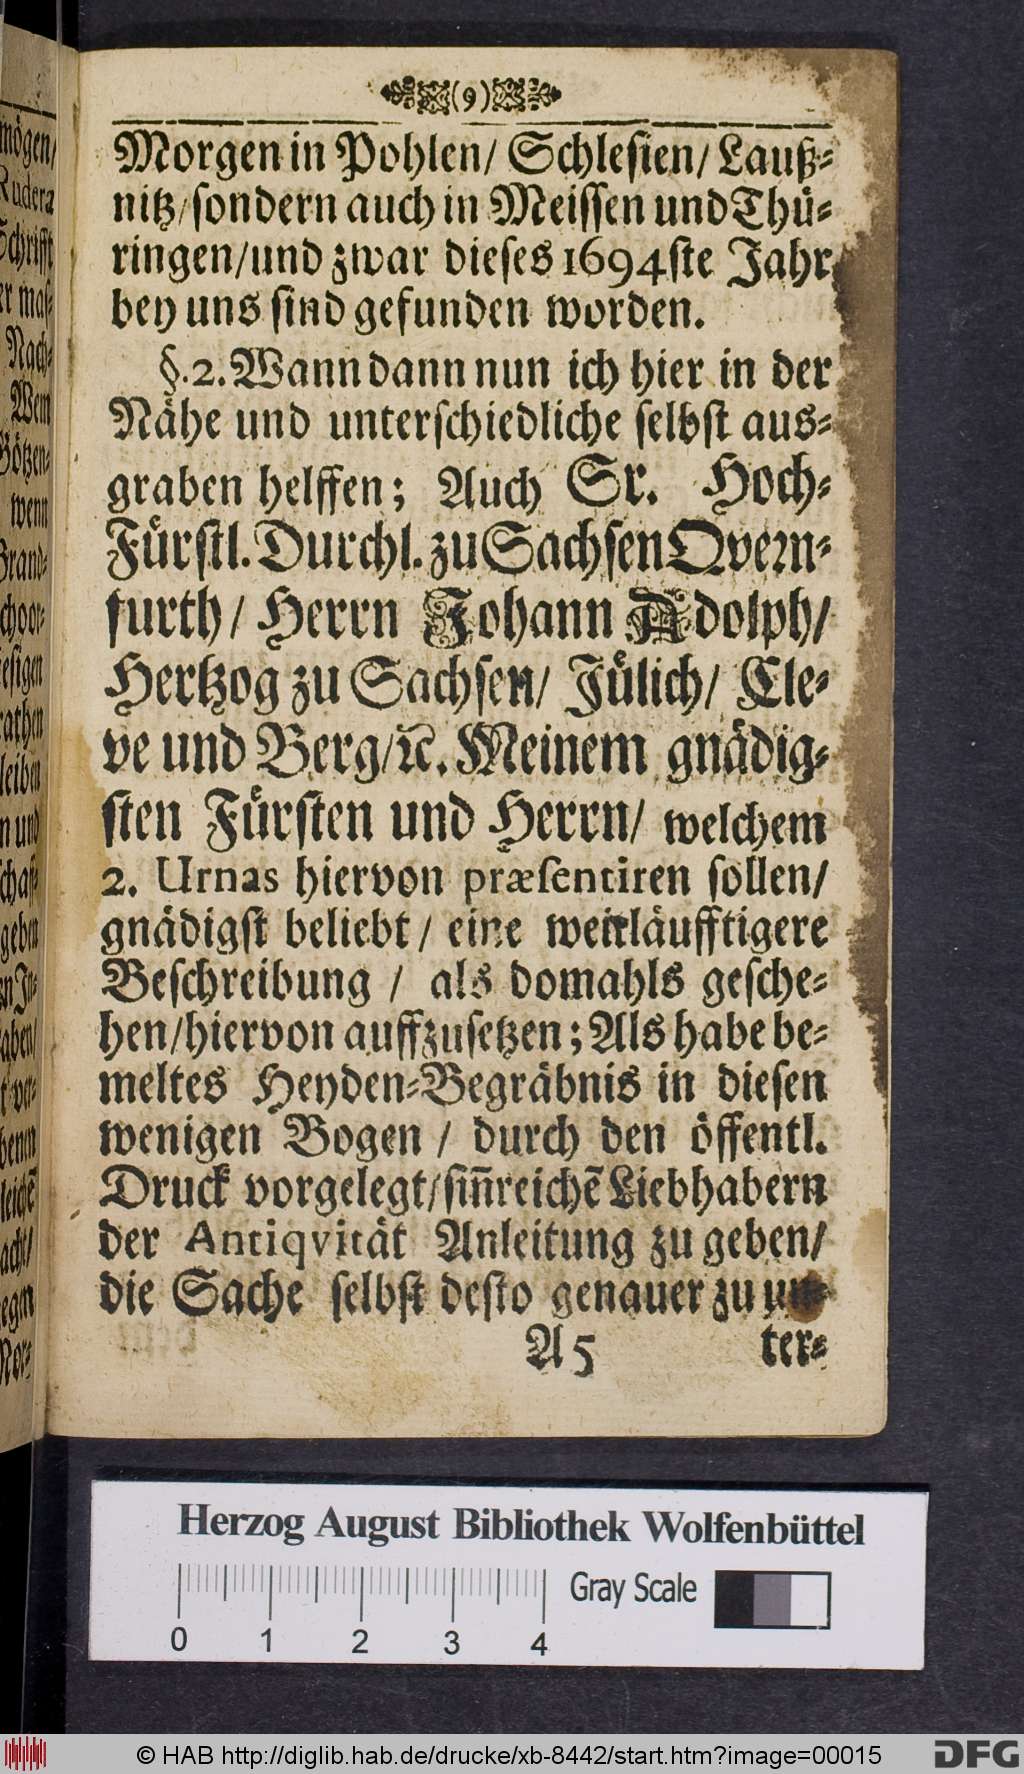 (9)
Morgen in Pohlen/ Schlesien/ Lauß-
nitz/sondern auch in Meissen und Thü-
ringen/und zwar dieses 1694ste Jahr
bey uns sind gefunden worden.
§.2. Wann dann nun ich hier in der
Nähe und unterschiedliche selbst aus-
graben helffen; Auch Sr. Hoch-
Fürstl. Durchl. zu Sachsen Qvern-
furth/ Herrn Johann Adolph/
Hertzog zu Sachsen/ Jülich/ Cle-
ve und Berg/ꝛc. Meinem gnädig-
sten Fürsten und Herrn/ welchem
2. Urnas hiervon præsentiren sollen/
gnädigst beliebt/ eine weitläufftigere
Beschreibung / als domahls gesche-
hen/hiervon auffzusetzen; Als habe be-
meltes Heyden-Begräbnis in diesen
wenigen Bogen / durch den öffentl.
Druck vorgelegt/sin̄reichē Liebhabern
der Antiqvität Anleitung zu geben/
die Sache selbst desto genauer zu un-
A5 ter-
mögen/
Rudera
Schrifft
er mas-
Nach-
Wem
Götzen-
wenn
Brand-
choor-
iesigen
rathen
leiben
n und
schaf-
geben
en In-
aben/
t ver-
benen
leichē
acht/
egen
Mor-
Herzog August Bibliothek Wolfenbüttel
Gray Scale
0 1 2 3 4
© HAB http://diglib.hab.de/drucke/xb-8442/start.htm?image=00015
DFG